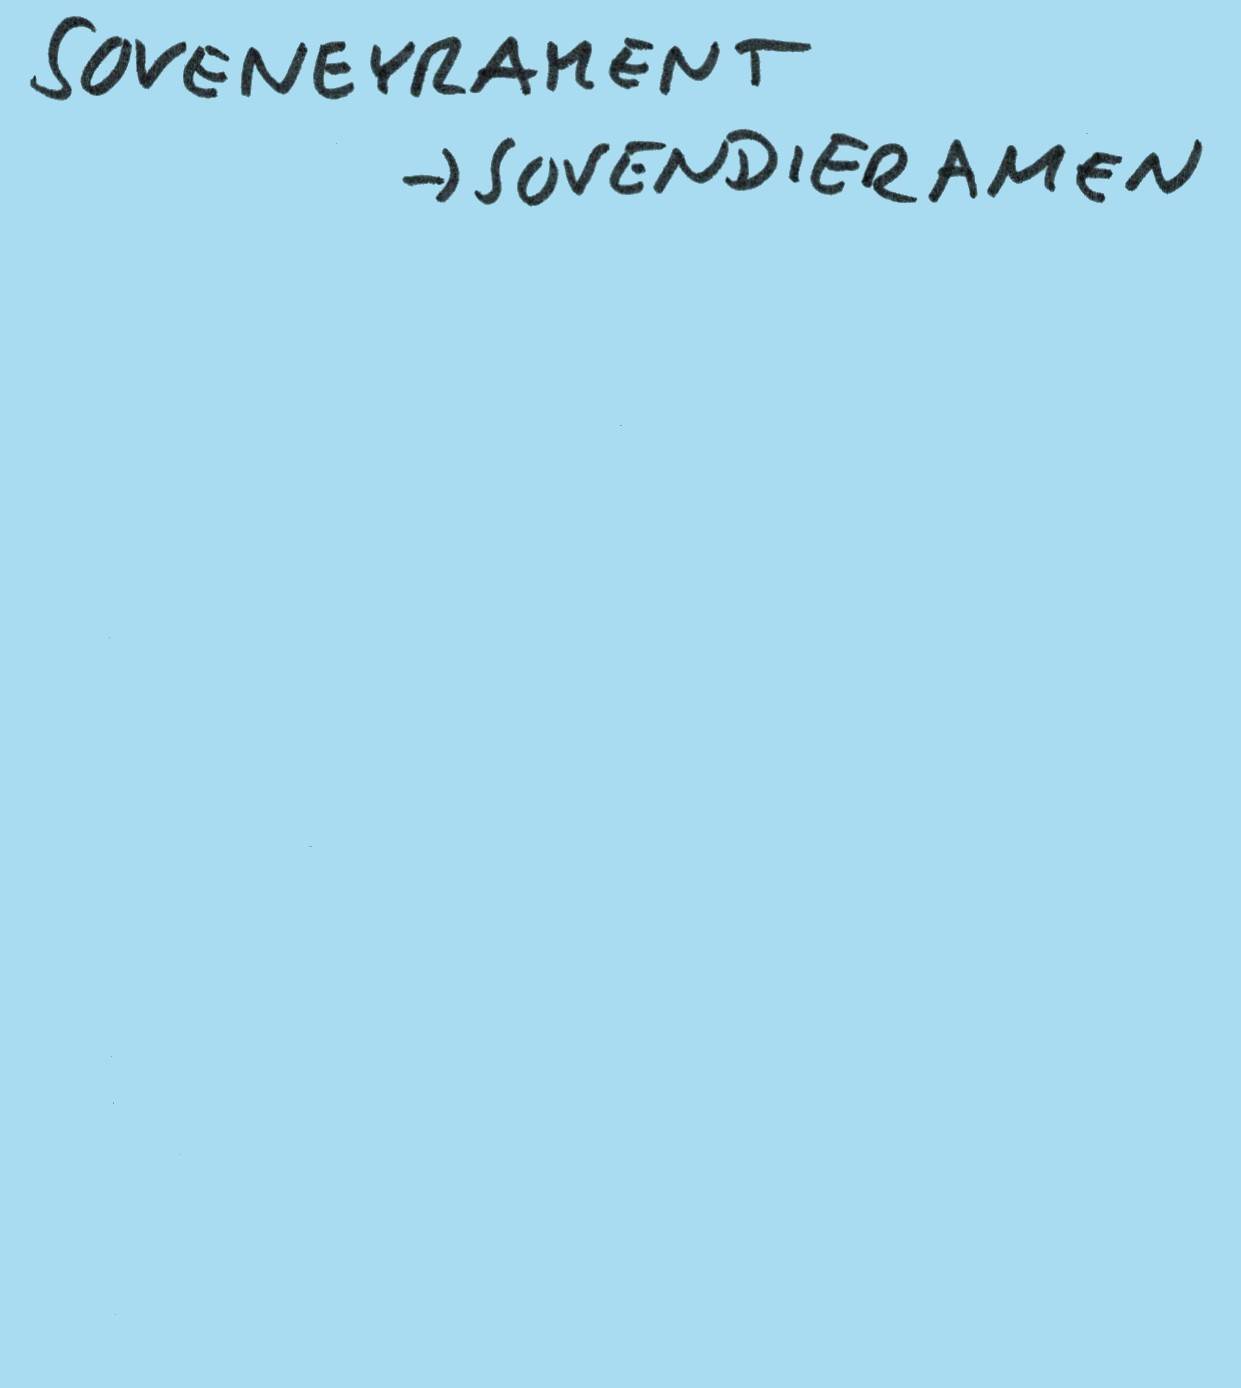 SOVENEYRAMENT
→ SOVENDIERAMEN